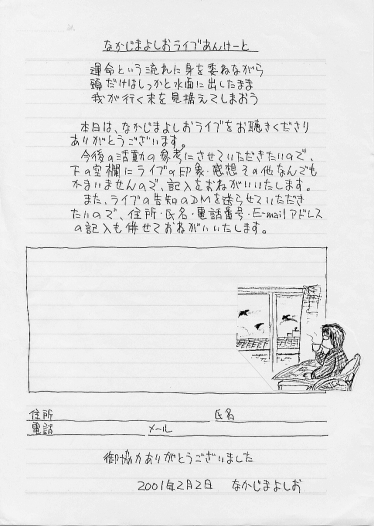 なかじまよしおライブあんけーと
運命という流れに身を委ねながら
頭だけはしっかと水面に出したまま
我が行く末を見据えてしまおう
本日は、なかじまよしおライブをお聴きくださり
ありがとうございます。
今後の活動の参考にさせていただきたいので、
下の空欄にライブの印象・感想その他なんでも
かまいませんので、記入をおねがいいたします。
また、ライブの告知のDMを送らせていただき
たいので、住所・氏名・電話番号・E-mailアドレス
の記入も併せておねがいいたします。
住所 氏名
電話 メール
御協力ありがとうございました
2001年2月2日 なかじまよしお